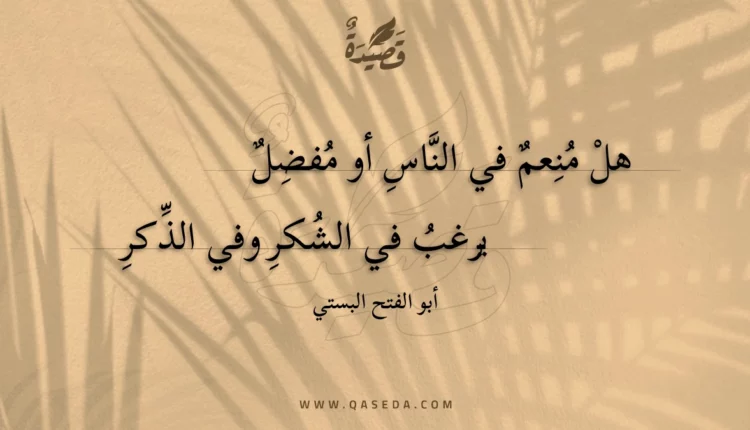 قَصِيْدَةٌ
هلْ مُنِعمٌ في النَّاسِ أو مُفضِلٌ
يرغبُ في الشُكرِ وفي الذِّكرِ
أبو الفتح البستي
WWW.QASEDA.COM